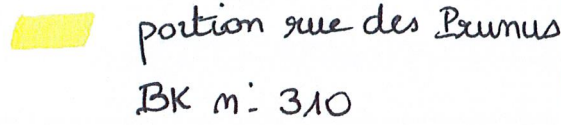 portion rue des Prunus
BK n: 310